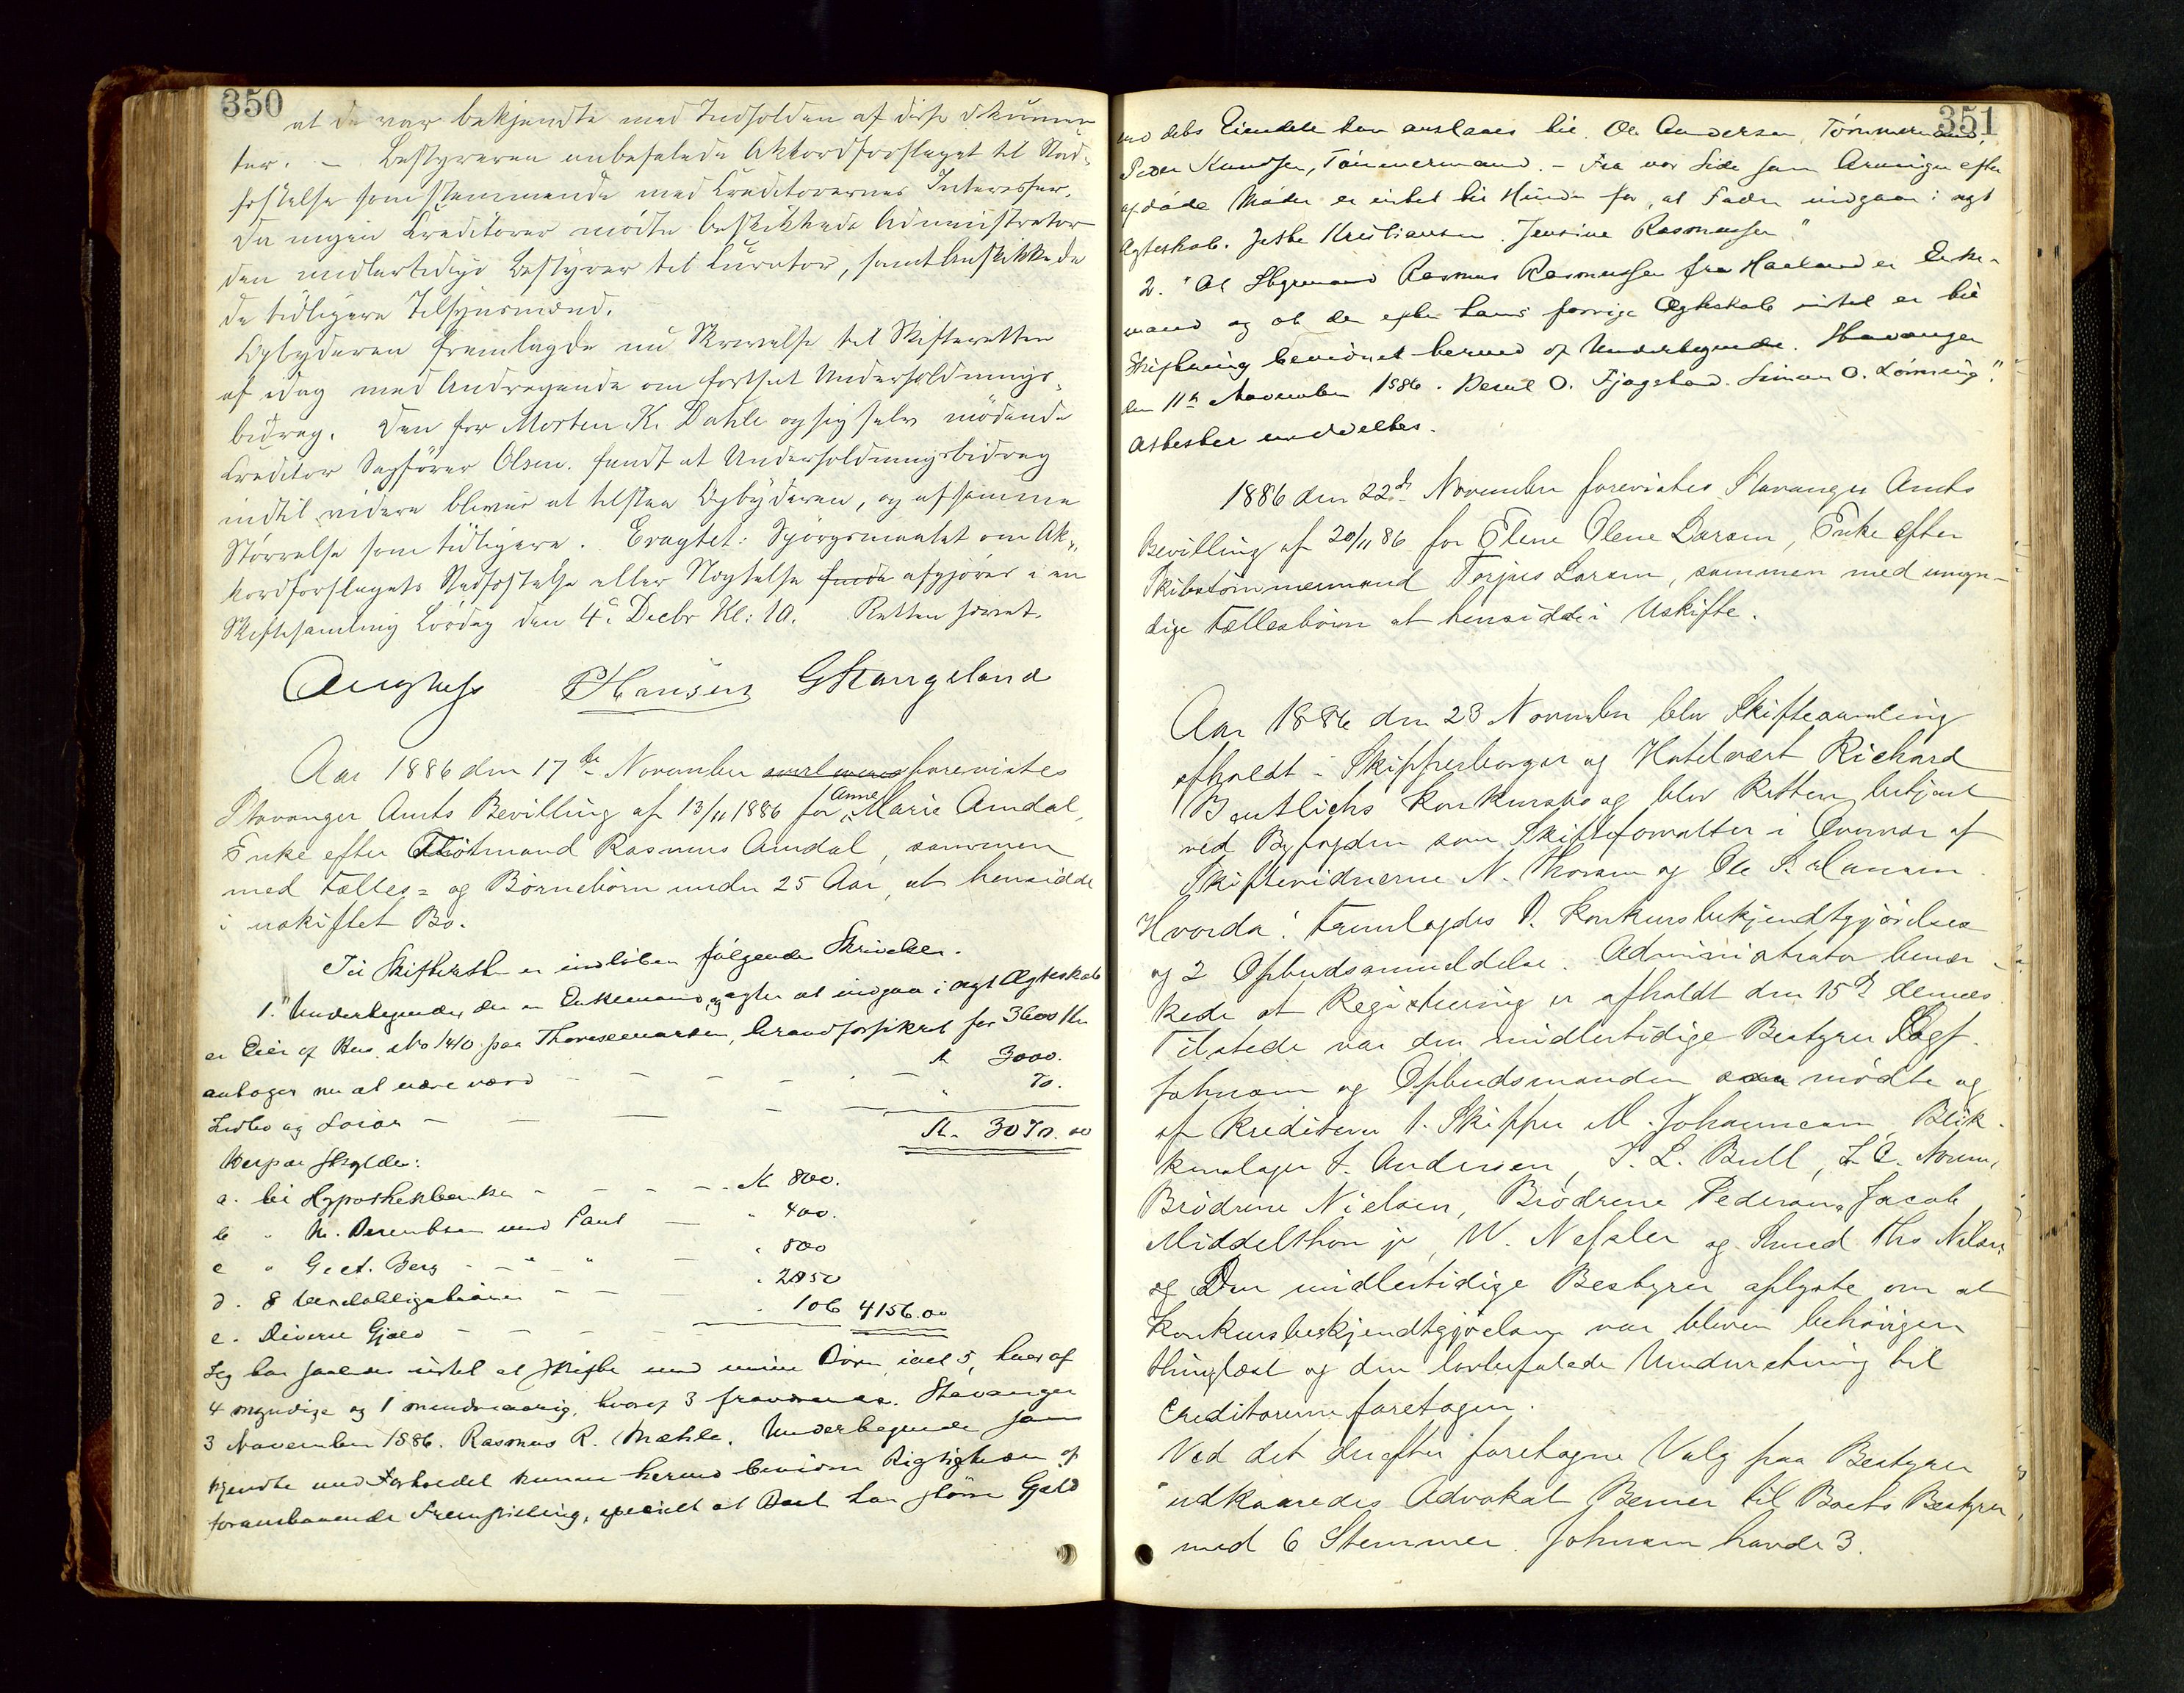 350
at de var bekjendte med Indholdet af disse Dokumen
ter. — Bestyreren anbefalede Akkordforslaget til Stad-
fæstelse som stemmende med Creditorernes Interesser.
Da ingen Creditorer mødte beskikkede Administrator
den midlertidige Bestyrer til Curator, samt beskikkede
de tidligere Tilsynsmænd.
Opbyderen fremlagde nu Skrivelse til Skifteretten
af idag med Andragende om fortsat Underholdnings-
bidrag. Den for Morten K. Dahle og sig selv mødende
Creditor Sagfører Olsen fandt at Underholdningsbidrag
indtil videre bliver at tilstaa Opbyderen, og af samme
Størrelse som tidligere. Eragtet: Spørgsmaalet om Ak-
kordforslagets Stadfæstelse eller Nægtelse afgjøres i en
Skiftesamling Lørdag den 4de Decbr Kl: 10. Retten hævet.
P Hansen G Stangeland
Aar 1886 den 17de November forevistes
Stavanger Amts Bevilling af 13/11 1886 for Anne Marie Amdal,
Enke efter Rasmus Amdal, sammen
med Fælles- og Børnebørn under 25 Aar, at hensidde
i uskiftet Bo.
Til Skifteretten er indløben følgende Skrivelser.
1. "Undertegnede, der er Enkemand og agter at indgaa i nyt Ægteskab
er Eier af Hus No 1410 paa brandforsikret for 3600 Kr
antages nu at være værd — — — — — Kr 3000.
Indbo og Løsøre — — — — " 70.
Kr. 3070.00
Herpaa skyldes:
a. til Hypothekbanken — — — — Kr 800.
b " N. Berentsen med Pant — " 400.
c " G. et. Berg — " — " — " 800
d. 8 — — — " 2050
e. Diverse Gjæld — — — — " 106 4156.00
Jeg har saaledes intet at skifte med mine Børn, ialt 5, hvoraf
4 myndige og 1 mindreaarig, hvoraf 3 fraværende. Stavanger
3 November 1886. Rasmus R. Mæhle. Undertegnede som
kjendte med Forholdet kunne herved bevidne Rigtigheden af
foranstaaende Fremstilling, specielt at Boet har større Gjæld
351
end dets Eiendele kan anslaaes til. Ole Andersen, Tømmermand,
Peder Knudsen, Tømmermand. — Fra vor Side som Arvinger efter
afdøde Moder er intet til Hinder for, at Fader indgaar i nyt
Ægteskab. Jethe Kristiansen. Jensine Rasmussen."
2. "At Styrmand Rasmus Rasmussen fra Haaland er Enke-
mand og at der efter hans forrige Ægteskab intet er til
Skiftning bevidnes herved af Undertegnede. Stavanger
den 11te November 1886. O. Fjogstad. Simon O. Lønning."
Attester meddeltes.
1886 den 22de November forevistes Stavanger Amts
Bevilling af 20/11 86 for Elene Olene Larsen, Enke efter
Skibstømmermand Torjus Larsen, sammen med umyn-
dige Fællesbørn at hensidde i Uskifte.
Aar 1886 den 23 November blev Skiftesamling
afholdt i Skipperborger og Hotelvært Richard
Bentlichs Konkursbo og blev Retten betjent
ved Byfogden som Skifteforvalter i Overvær af
Skiftevidnerne N. Thorsen og Ole S. Hansen.
Hvorda: Fremlagdes 1. Konkursbekjendtgjørelse
og 2 Opbudsanmeldelse. Administrator bemær-
kede at Registrering er afholdt den 15de dennes.
Tilstede var den midlertidige Bestyrer Sagf.
Johnsen og Opbudsmanden mødte og
af Kreditorer 1. Skipper M. Johannesen, Blik-
kenslager S. Andersen, S. L. Bull, L. C. Norem,
Brødrene Nielsen, Brødrene Pedersen, Jacob
Middelthon jr, W. Nessler og Smed Ths Nilsen
Den midlertidige Bestyrer oplyste om at
Konkursbekjendtgjørelsen var bleven behørigen
thinglæst og den lovbefalede Underretning til
Creditorerne foretagen.
Ved det derefter foretagne Valg paa Bestyrer
udkaaredes Advokat Berner til Boets Bestyrer,
med 6 Stemmer. Johnsen havde 3.